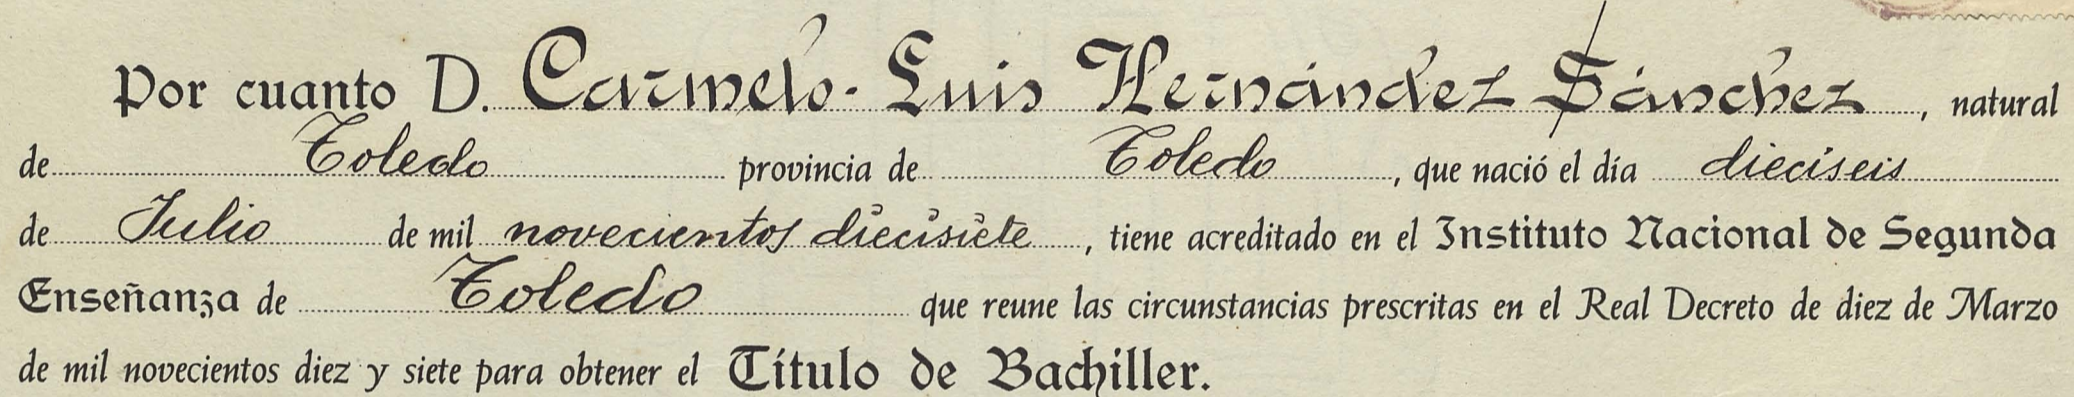 Por cuanto D. Carmelo-Luis Hernández Sánchez, natural
de Toledo provincia de Toledo, que nació el día dieciseis
de Julio de mil novecientos diecisiete, tiene acreditado en el Instituto Nacional de Segunda
Enseñanza de Toledo que reune las circunstancias prescritas en el Real Decreto de diez de Marzo
de mil novecientos diez y siete para obtener el Título de Bachiller.